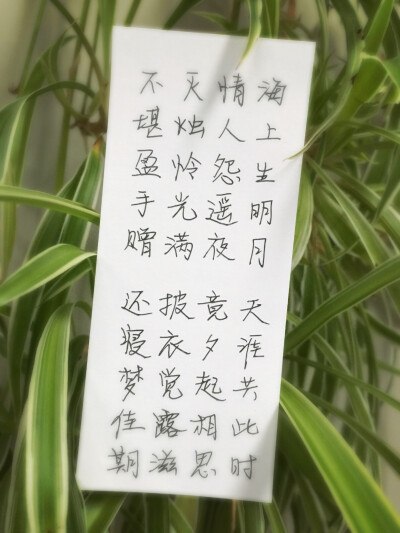 海上生明月 天涯共此时
情人怨遥夜 竟夕起相思
灭烛怜光满 披衣觉露滋
不堪盈手赠 还寝梦佳期